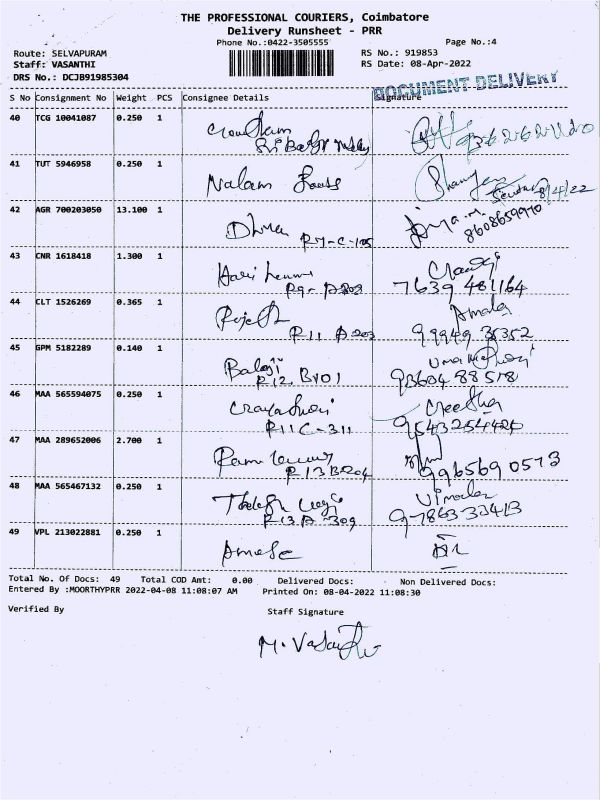 THE PROFESSIONAL COURIERS, Coimbatore
Delivery Runsheet - PRR
Phone No.:0422-3505555
Page No.:4
Route: SELVAPURAM
RS No.: 919853
Staff: VASANTHI
RS Date: 08-Apr-2022
DRS No.: DCJB91985304
DOCUMENT DELIVERY
S No Consignment No Weight PCS Consignee Details Signature
40 TCG 10041087 0.250 1
41 TUT 5946958 0.250 1 Nalam
8/4/22
42 AGR 700203050 13.100 1
R7-C-105 8608659970
43 CNR 1618418 1.300 1 Hari
R9- 7639 481164
44 CLT 1526269 0.365 1 Amala
R11 99949 35352
45 GPM 5182289 0.140 1 Balaji
R12 B101 93604 88578
46 MAA 565594075 0.250 1 Geetha
R11C-311
47 MAA 289652006 2.700 1
R13B204 996569 0573
48 MAA 565467132 0.250 1 Vimala
R13A-309 97863 33413
49 VPL 213022881 0.250 1
Total No. Of Docs: 49 Total COD Amt: 0.00 Delivered Docs: Non Delivered Docs:
Entered By :MOORTHYPRR 2022-04-08 11:08:07 AM Printed On: 08-04-2022 11:08:30
Verified By Staff Signature